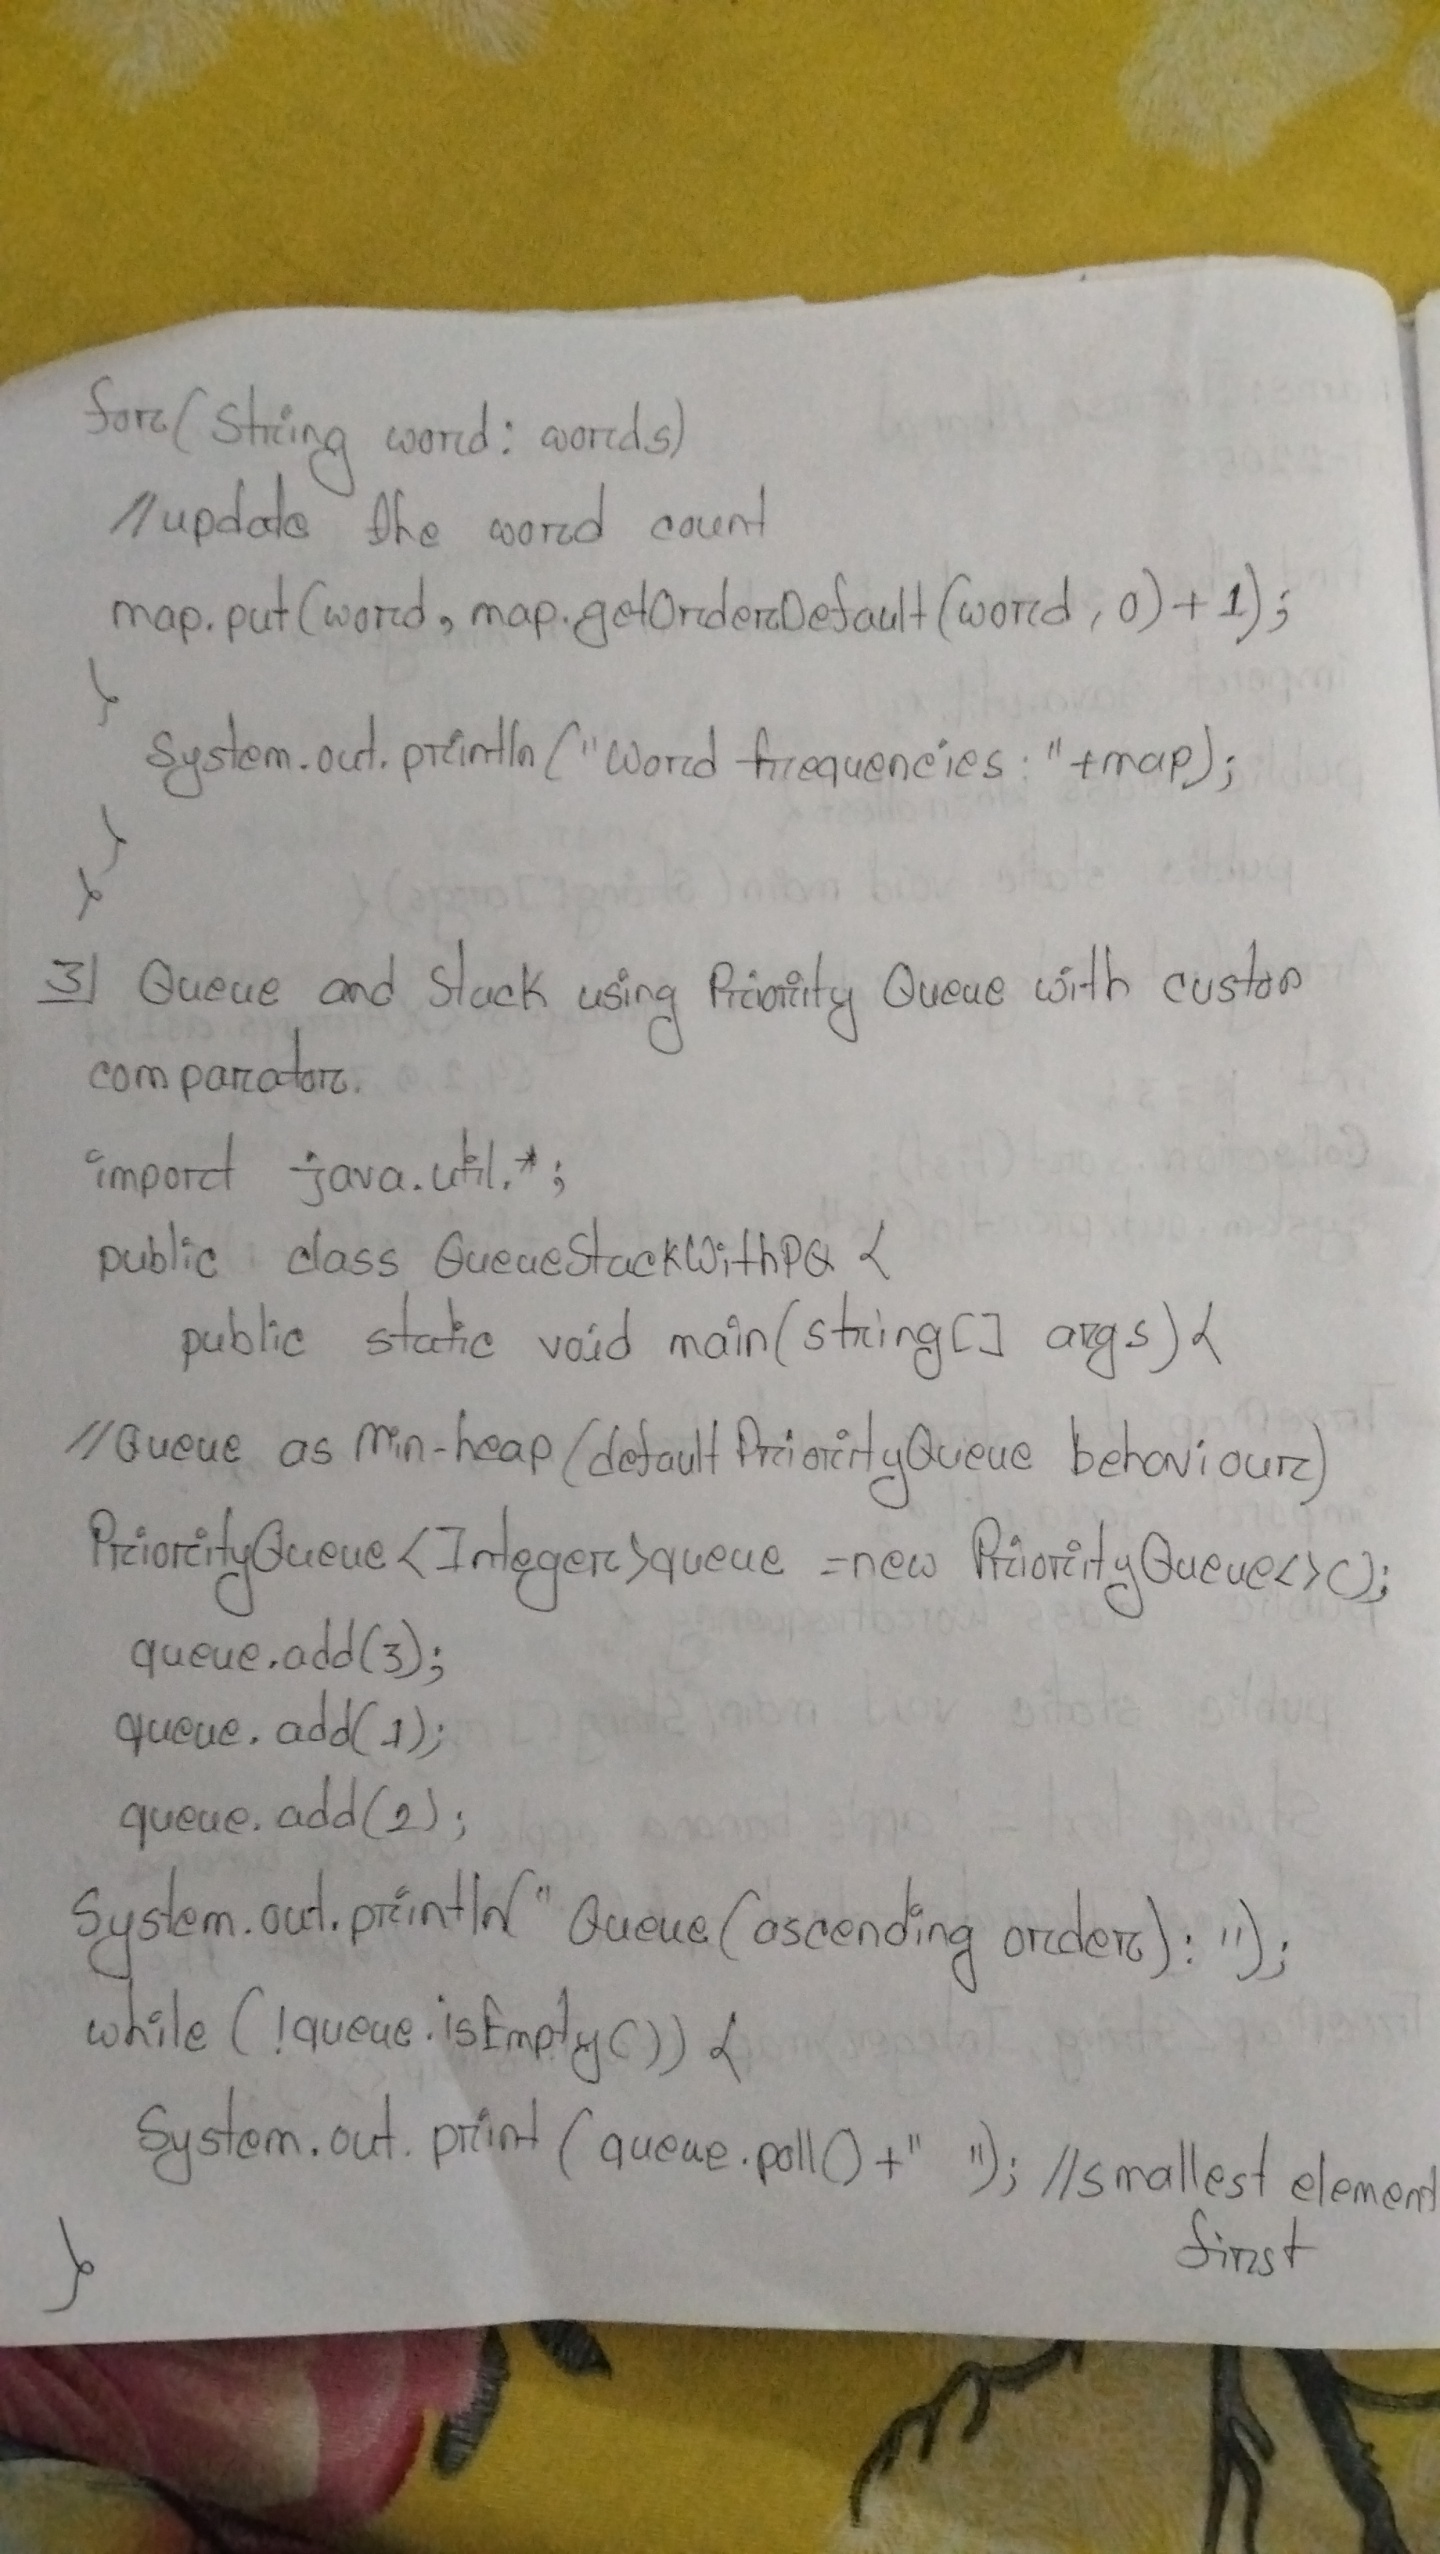 for(String word: words)
//update the word count
map.put(word, map.getOrderDefault(word, 0)+1);
}
System.out.println("Word frequencies: "+map);
}
}
3| Queue and Stack using Priority Queue with custom
comparator.
import java.util.*;
public class QueueStackWithPQ {
public static void main(string[] args){
//Queue as Min-heap(default PriorityQueue behaviour)
PriorityQueue<Integer>queue =new PriorityQueue<>();
queue.add(3);
queue.add(1);
queue.add(2);
System.out.println("Queue(ascending order): ");
while (!queue.isEmpty()) {
System.out.print(queue.poll()+" "); //smallest element
first
}